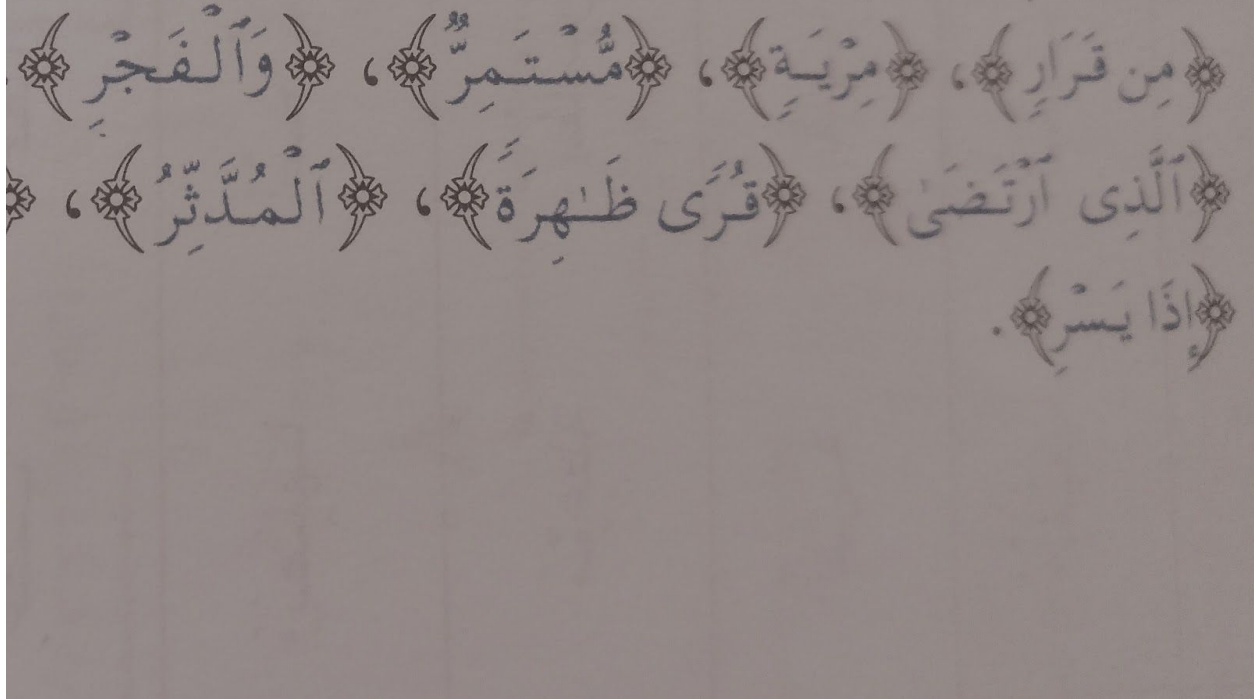 ﴿مِن قَرَارٍ﴾، ﴿مِرْيَةٍ﴾، ﴿مُّسْتَمِرٌّ﴾، ﴿وَٱلْفَجْرِ﴾.
﴿ٱلَّذِى ٱرْتَضَىٰ﴾، ﴿قُرًى ظَـٰهِرَةً﴾، ﴿ٱلْمُدَّثِّرُ﴾، ﴿
﴿إِذَا يَسْرِ﴾.